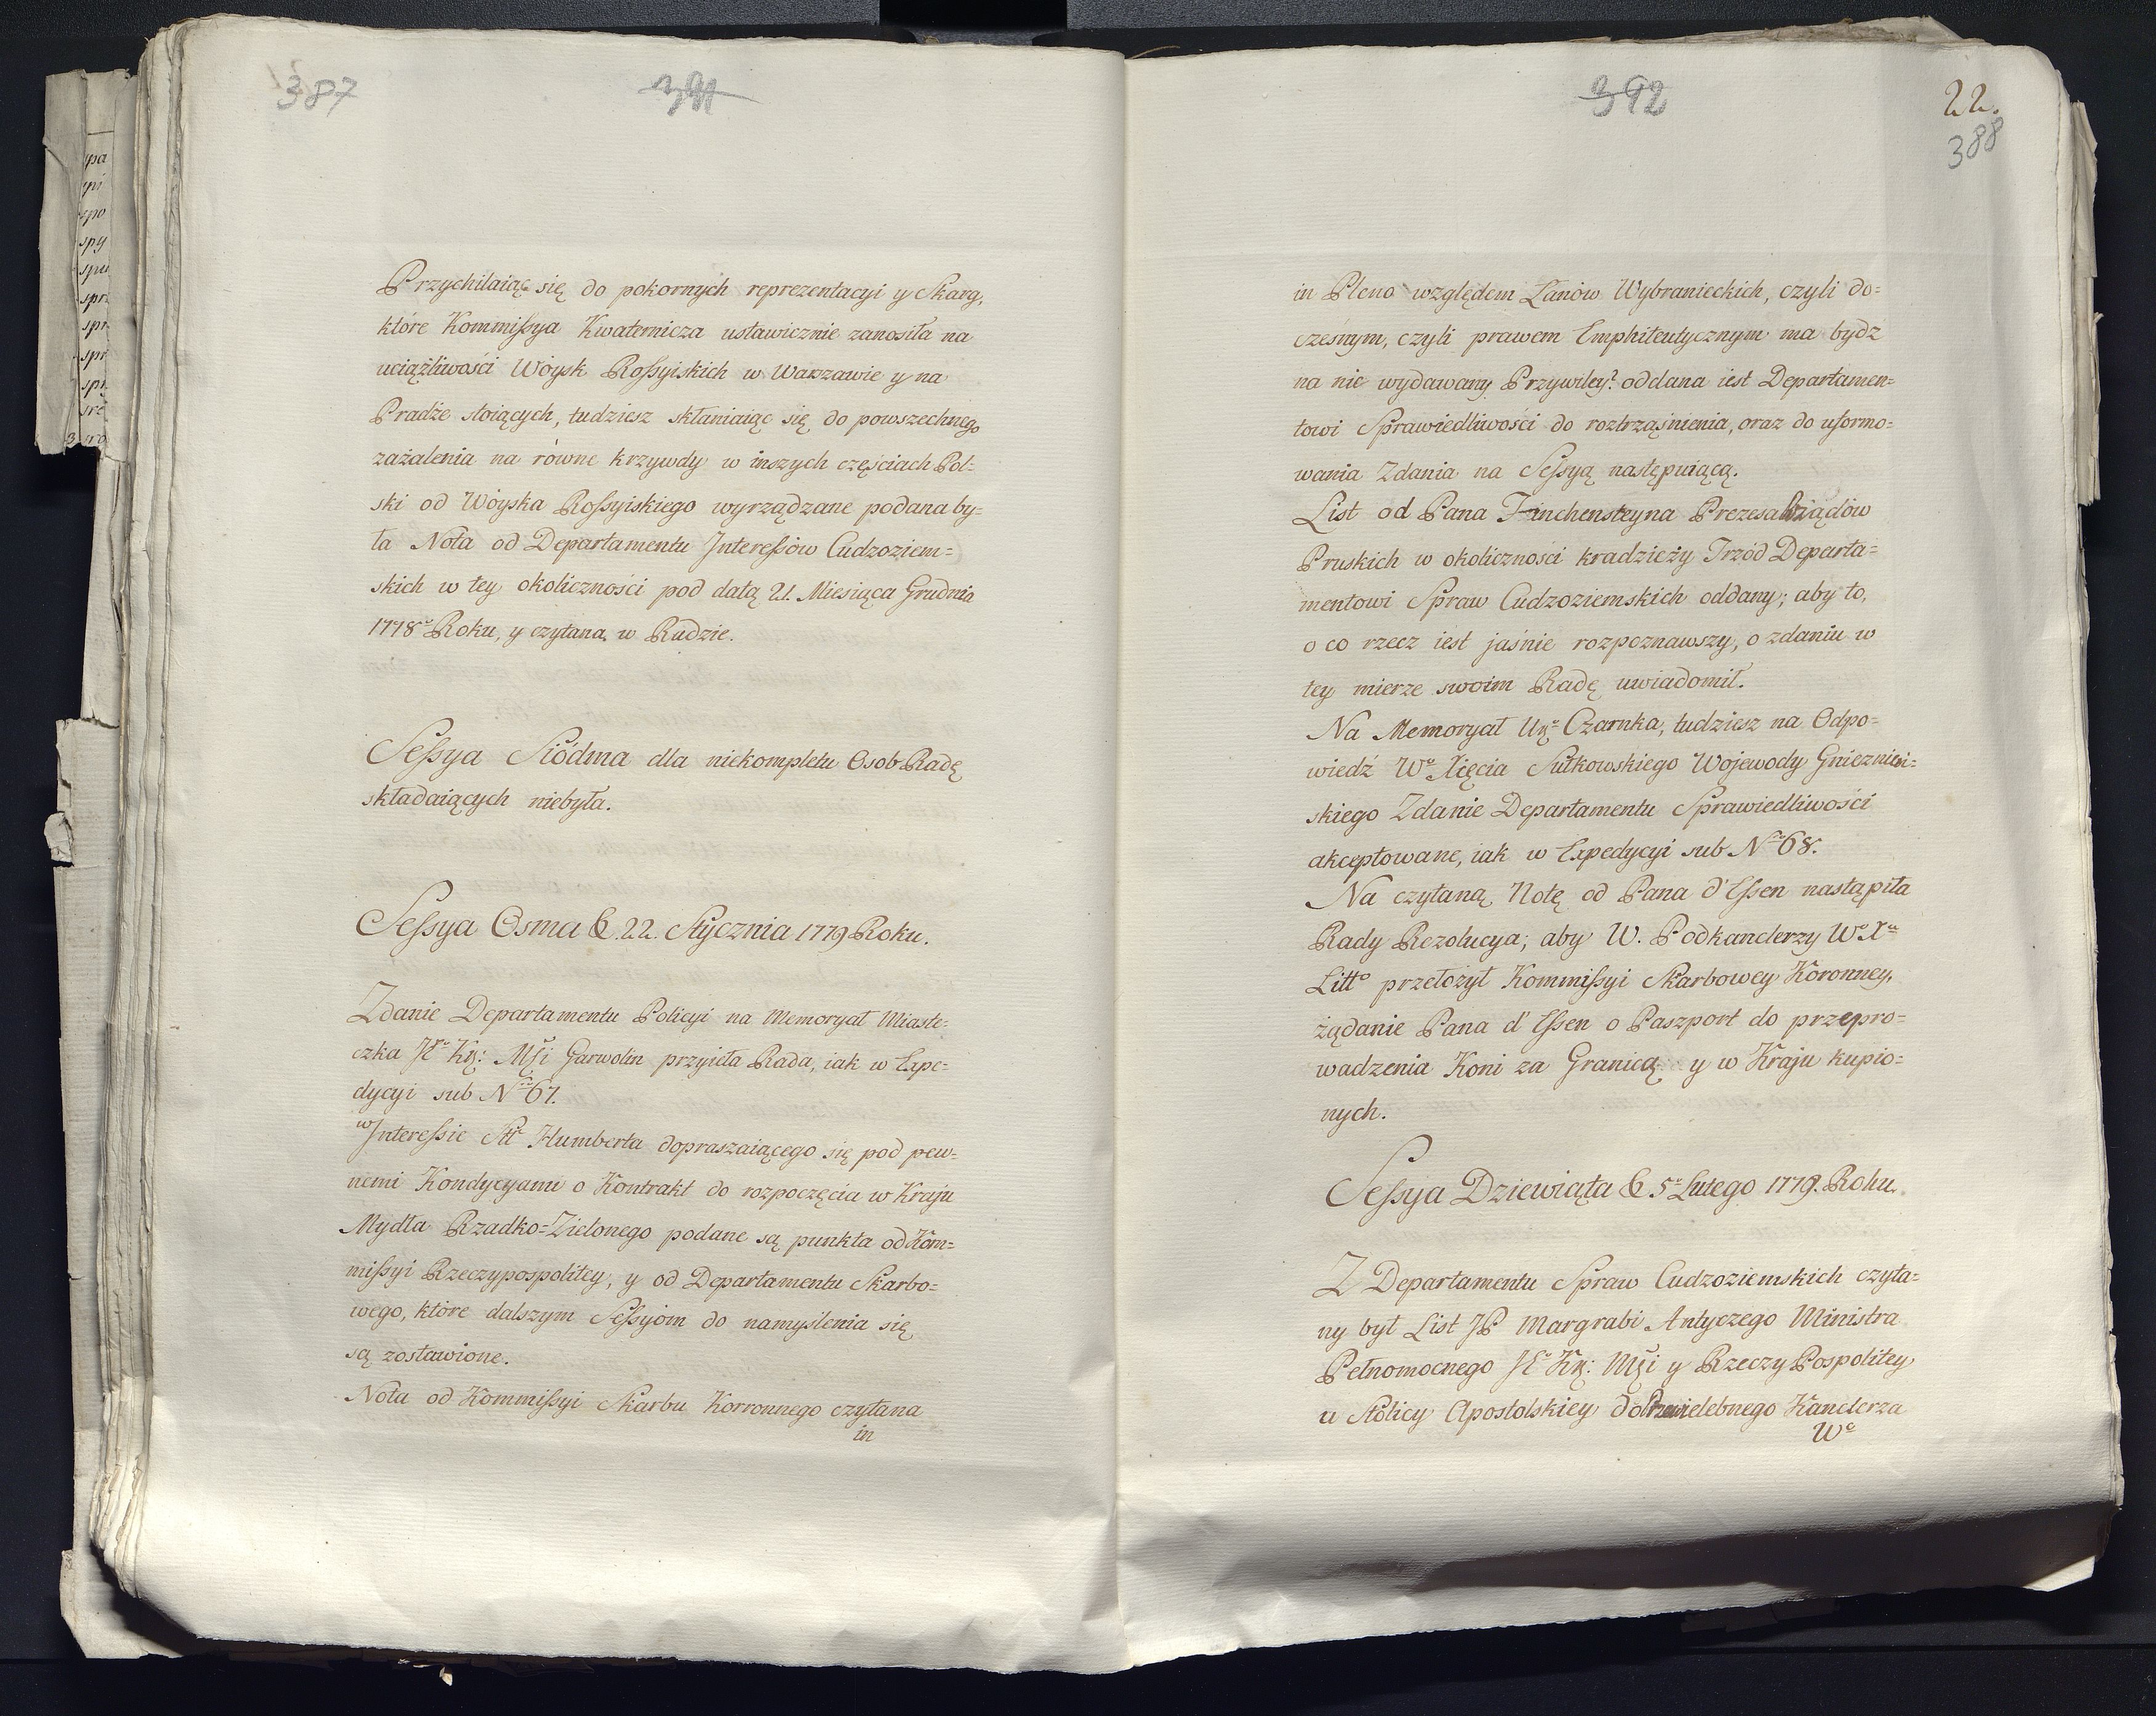 387
391
Przychilaiąc się do pokornych reprezentacyi y Skarg,
które Kommissya Kwaternicza ustawicznie zanosiła na
uciążliwości Woysk Rossyiskich w Warszawie y na
Pradze stoiących, tudziesz skłaniaiąc się do powszechnego
zażalenia na równe krzywdy w inszych częściach Pol=
ski od Woyska Rossyiskiego wyrządzane podana by=
ła Nota od Departamentu Interessów Cudzoziem=
skich w tey okoliczności pod datą 21. Miesiąca Grudnia
1778º Roku, y czytana w Radzie.
Sessya Siódma dla niekompletu Osob Radę
składaiących niebyła.
Sessya Osma 22. Stycznia 1779 Roku.
Zdanie Departamentu Policyi na Memoryał Miaste=
czka Garwolin przyięła Rada, iak w Expe=
dycyi sub Nro 67.
w Interessie Humberta dopraszaiącego się pod pew=
nemi Kondycyami o Kontrakt do rozpoczęcia w Kraju
Mydła Rzadko=Zielonego podane są punkta od Kom=
missyi Rzeczypospolitey, y od Departamentu Skarbo=
wego, które dalszym Sessyiom do namyslenia się
są zostawione.
Nota od Kommissyi Skarbu Korronnego czytana
in
392
22.
388
in Pleno względem Łanów Wybranieckich, czyli do=
czesnym, czyli prawem Emphiteutycznym ma bydz
na nie wydawany Przywiley? oddana iest Departamen=
towi Sprawiedliwości do roztrząśnienia, oraz do uformo=
wania Zdania na Sessyą następuiącą.
List od Pana Finchensteyna Prezesa Rządów
Pruskich w okoliczności kradzieży Trzód Departa=
mentowi Spraw Cudzoziemskich oddany; aby to,
o co rzecz iest jaśnie rozpoznawszy, o zdaniu w
tey mierze swoim Radę uwiadomił.
Na Memoryał Czarnka, tudziesz na Odpo=
wiedź Wº Xięcia Sułkowskiego Wojewody Gnieznień=
skiego Zdanie Departamentu Sprawiedliwości
akceptowane, iak w Expedycyi sub Nro 68.
Na czytaną Notę od Pana d'Essen nastąpiła
Rady Rezolucya; aby W. Podkanclerzy Wº Xa
Littº przełożył Kommissyi Skarbowey Koronney,
żądanie Pana d'Essen o Paszport do przepro=
wadzenia Koni za Granicą y w Kraju kupio=
nych.
Sessya Dziewiąta 5º Lutego 1779. Roku.
Z Departamentu Spraw Cudzoziemskich czyta=
ny był List JP Margrabi Antyczego Ministra
Pełnomocnego y Rzeczy Pospolitey
u Stolicy Apostolskiey do Przewielebnego Kanclerza
Wº